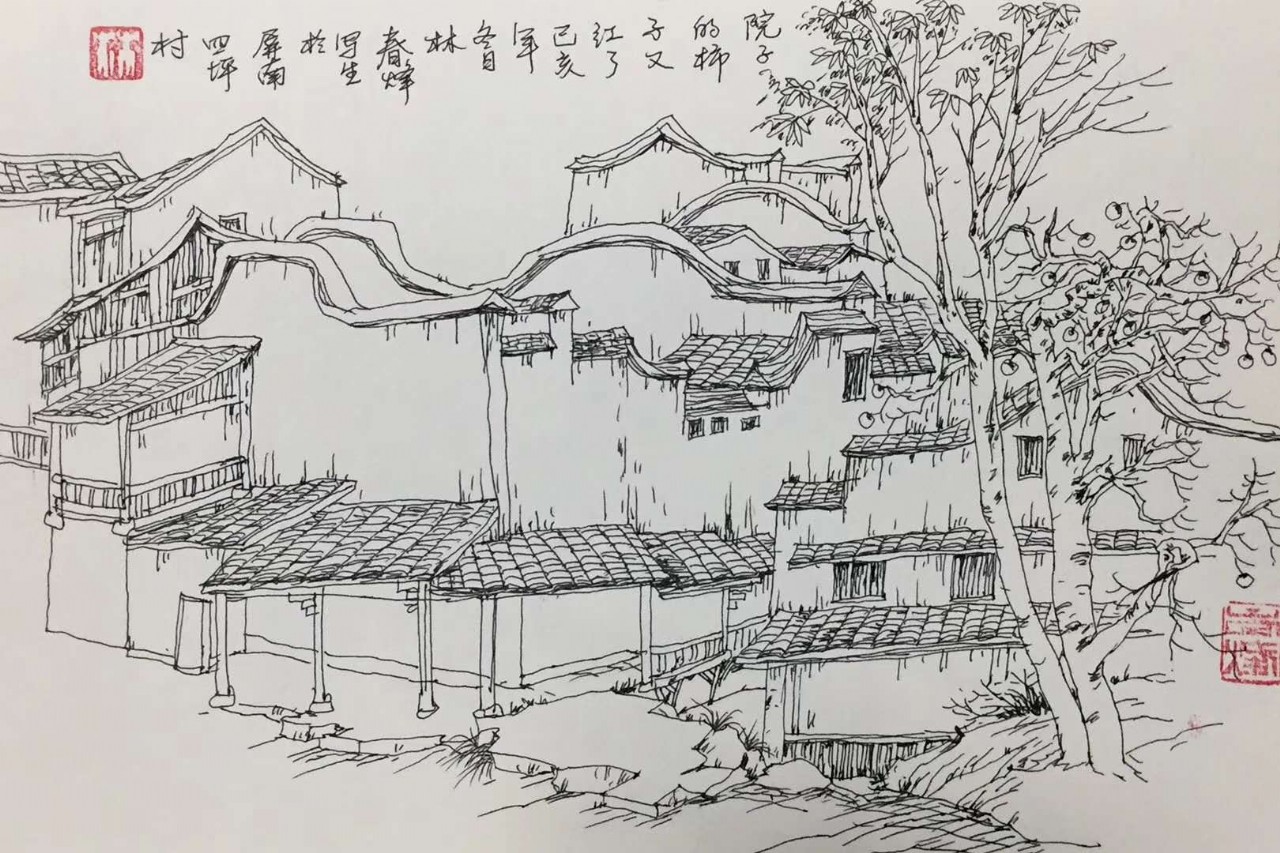 院子
的柿
子又
红了
己亥
年
冬日
林
春烽
写生
於
屏南
四坪
村